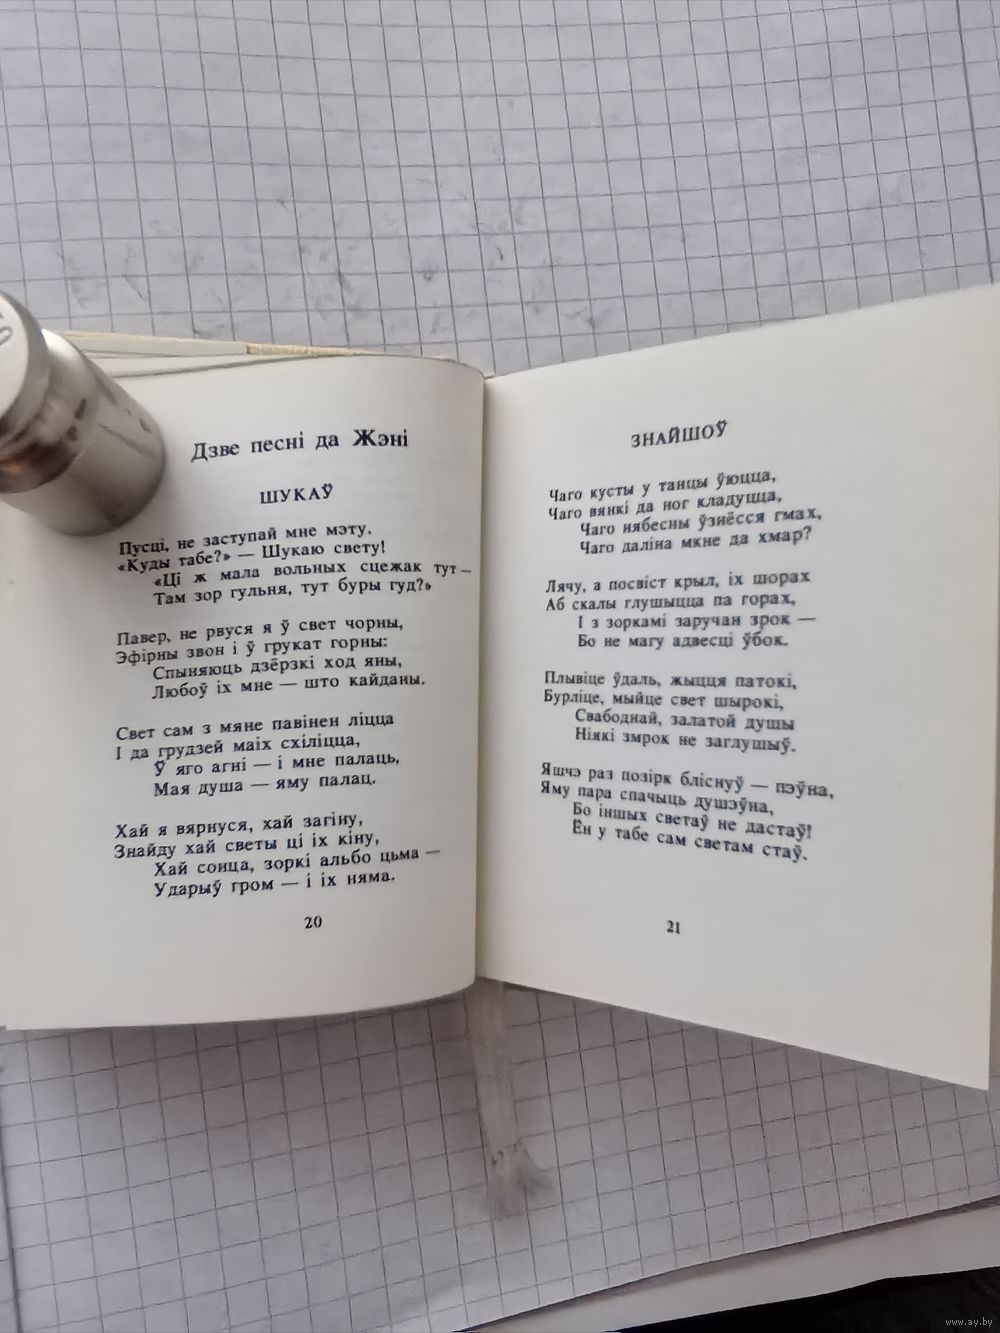 Дзве песні да Жэні
ШУКАЎ
Пусці, не заступай мне мэту.
«Куды табе?» — Шукаю свету!
«Ці ж мала вольных сцежак тут —
Там зор гульня, тут буры гуд?»
Павер, не рвуся я ў свет чорны,
Эфірны звон і ў грукат горны:
Спыняюць дзёрзкі ход яны,
Любоў іх мне — што кайданы.
Свет сам з мяне павінен ліцца
І да грудзей маіх схіліцца,
Ў яго агні — і мне палаць,
Мая душа — яму палац.
Хай я вярнуся, хай загіну,
Знайду хай светы ці іх кіну,
Хай сонца, зоркі альбо цьма —
Ударыў гром — і іх няма.
20
ЗНАЙШОЎ
Чаго кусты у танцы ўюцца,
Чаго вянкі да ног кладуцца,
Чаго нябесны ўзнёсся гмах,
Чаго даліна мкне да хмар?
Лячу, а посвіст крыл, іх шорах
Аб скалы глушыцца па горах,
І з зоркамі заручан зрок —
Бо не магу адвесці ўбок.
Плывіце ўдаль, жыцця патокі,
Бурліце, мыйце свет шырокі,
Свабоднай, залатой душы
Ніякі змрок не заглушыў.
Яшчэ раз позірк бліснуў — пэўна,
Яму пара спачыць душэўна,
Бо іншых светаў не дастаў!
Ён у табе сам светам стаў.
21
www.ay.by